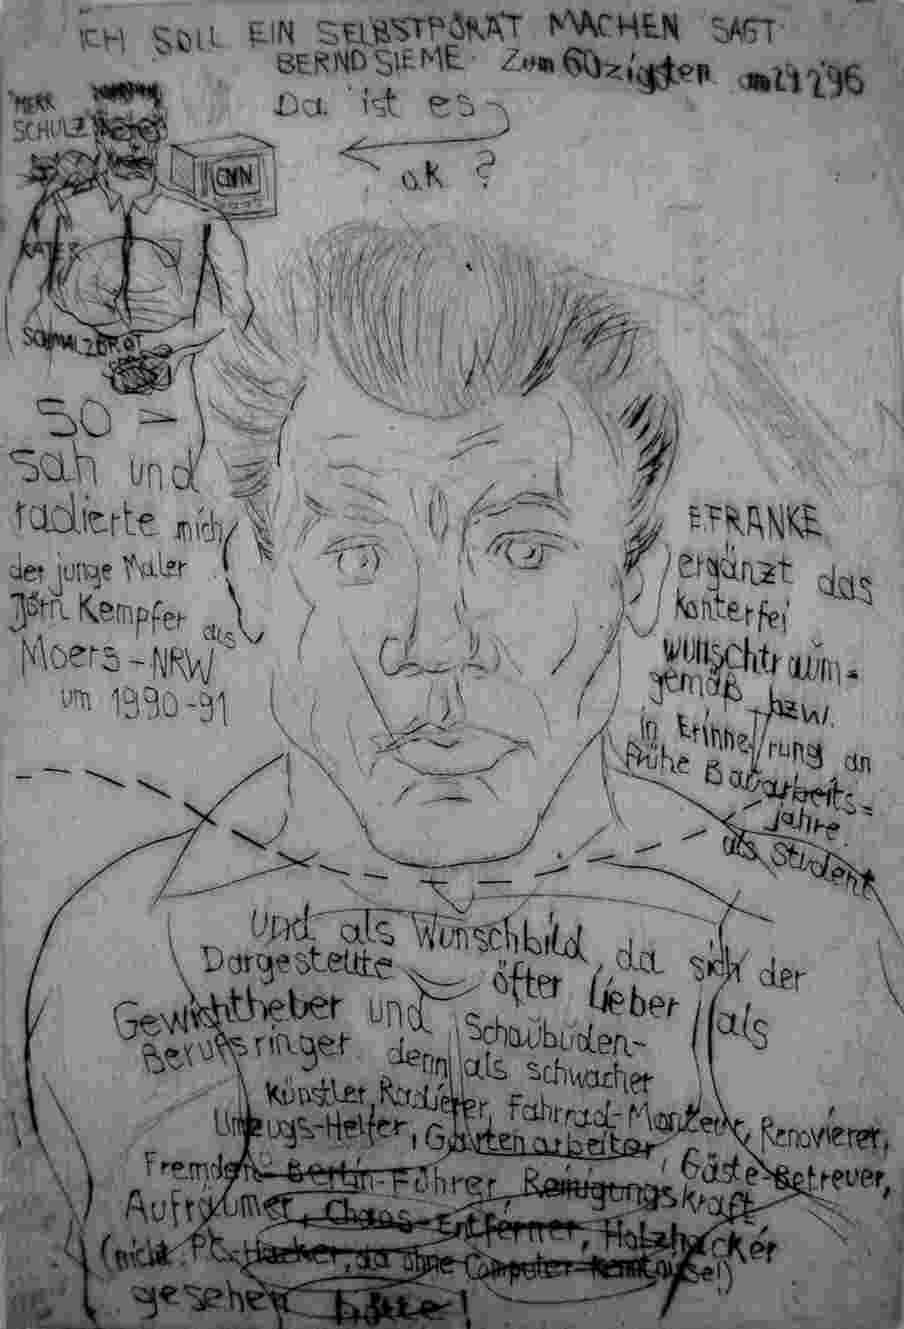 ICH SOLL EIN SELBSTPORAT MACHEN SAGT
BERND SIEME Zum 60zigsten am 29 2 '96
Da ist es
ok ?
"HERR
SCHULZ"
CNN
KATER
SCHMALZBROT
SO >
sah und
radierte mich
der junge Maler
Jörn Kempfer aus
Moers-NRW
um 1990-91
E.FRANKE
ergänzt das
Konterfei
wunschtraum=
gemäß bzw.
in Erinnerung an
frühe Bauarbeits=
jahre
als Student
und als Wunschbild, da sich der
Dargestellte öfter lieber als
Gewichtheber und Schaubuden-
Berufsringer denn als schwacher
Künstler, Radierer, Fahrrad-Monteur, Renovierer,
Umzugs-Helfer, Gartenarbeiter, Gäste-Betreuer,
Fremden-Berlin-Führer, Reinigungskraft
Aufräumer, Chaos-Entferner, Holzhacker
(nicht PC-Hacker, da ohne Computer-Kenntnisse!)
gesehen hätte!